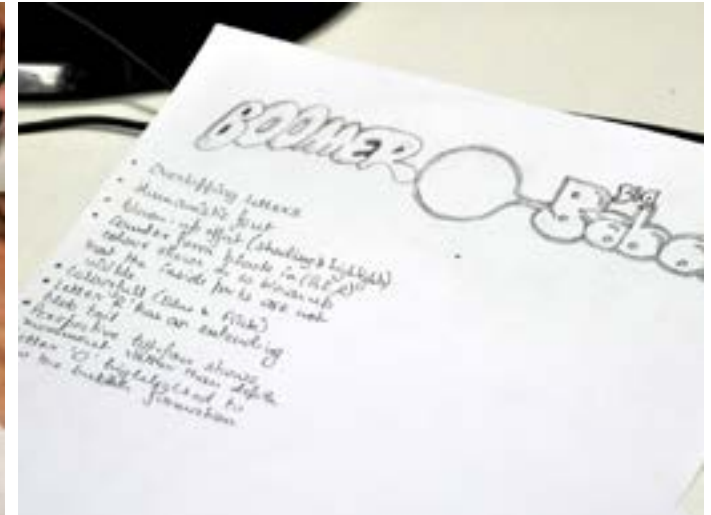 BOOMER
BIG
Babo
• Overlapping letters
• Humanistic font
• Blown-up effect (shading & highlights)
• Counter form
colour shown is so blown up
that the inside parts are not
visible
• Colourful (Blue & Pink)
• Letter 'R' has an extending
blob tail
• Perspective
movement rather than depth
letter 'O' highlighted to
the bubble formation